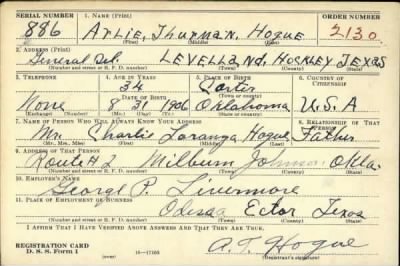 SERIAL NUMBER 1. NAME (Print) ORDER NUMBER
886 Arlie, Thurman, Hogue 2130
(First) (Middle) (Last)
2. ADDRESS (Print)
General Del. LEVELLAND, HOCKLEY TEXAS
(Number and street or R. F. D. number) (Town) (County) (State)
3. TELEPHONE 4. AGE IN YEARS 5. PLACE OF BIRTH 6. COUNTRY OF CITIZENSHIP
34 Carter
DATE OF BIRTH (Town or county)
None 8 31 1906 Oklahoma U.S.A
(Exchange) (Number) (Mo.) (Day) (Yr.) (State or country)
7. NAME OF PERSON WHO WILL ALWAYS KNOW YOUR ADDRESS 8. RELATIONSHIP OF THAT PERSON
Mr. Charlie Hogue Father
(Mr., Mrs., Miss) (First) (Middle) (Last)
9. ADDRESS OF THAT PERSON
Route #2 Milburn Johnson Okla.
(Number and street or R. F. D. number) (Town) (County) (State)
10. EMPLOYER'S NAME
George P. Livermore
11. PLACE OF EMPLOYMENT OR BUSINESS
Odessa Ector Texas
(Number and street or R. F. D. number) (Town) (County) (State)
I AFFIRM THAT I HAVE VERIFIED ABOVE ANSWERS AND THAT THEY ARE TRUE.
REGISTRATION CARD
D. S. S. Form 1 16—17105 A.T. Hogue
(Registrant's signature)